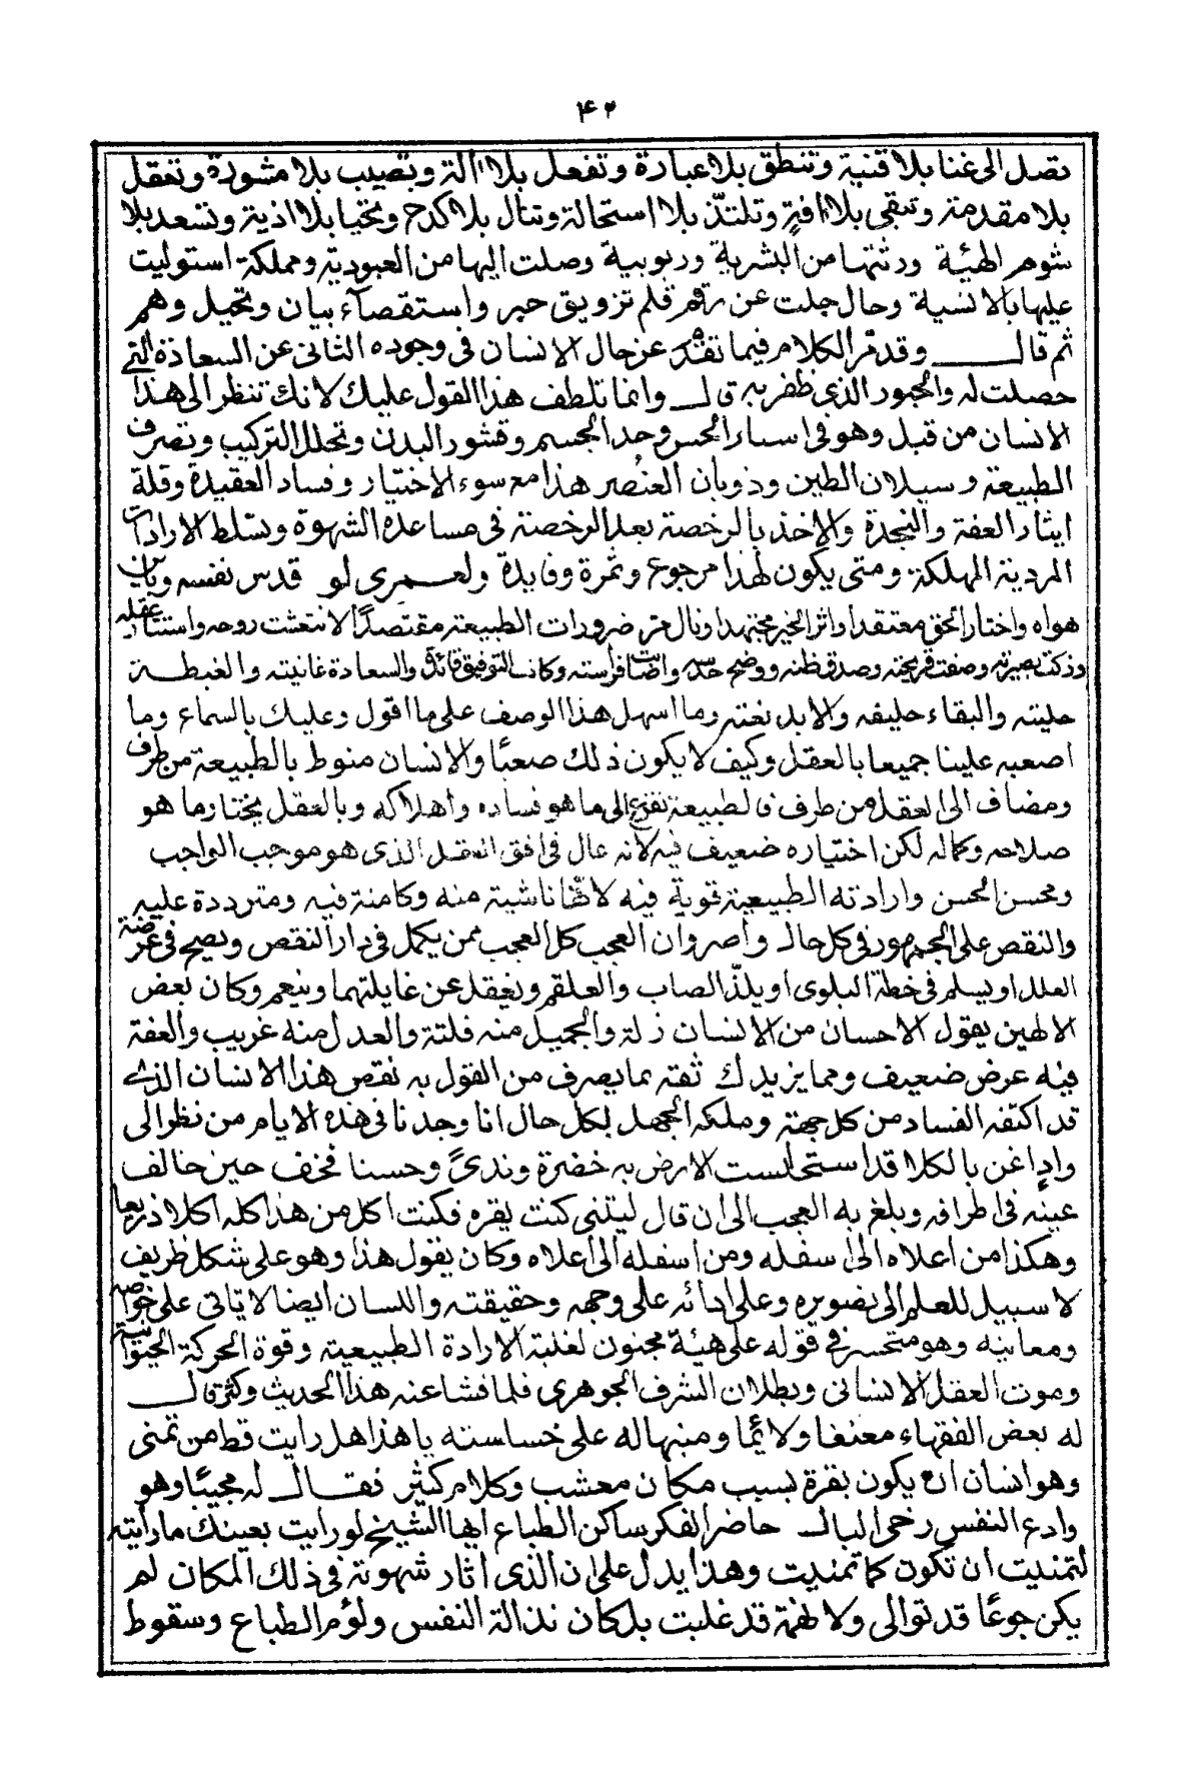 ۴۲
تصل الى غنا بلا قنية وتنطق بلا عبارة وتفعل بلا الة وتصيب بلا مشورة وتعقل
بلا مقدمة وتبقى بلا افة وتلتذ بلا استحالة وتنال بلا كدح وتحيا بلا اذية وتسعد بلا
شوهر الهيئة ورثتها من البشرية وربوبية وصلت اليها من العبودية ومملكة استوليت
عليها بالانسية وحال جلت عن رقم قلم تزويق حبر واستقصاء بيان وتخيل وهم
ثم قال وقد مر الكلام فيما تقدم عن حال الانسان فى وجوده الثانى عن السعادة التى
حصلت له والحبور الذى ظفر به قال وانما تلطف هذا القول عليك لانك تنظر الى هذا
الانسان من قبل وهو فى اساء الحس وحد الجسم وقشور البدن وتحلل التركيب وتصرف
الطبيعة وسيلان الطين وذوبان العنصر هذا مع سوء الاختيار وفساد العقيدة وقلة
ايثار العفة والنجدة والاخذ بالرخصة بعد الرخصة فى مساعدة الشهوة وتسلط الارادات
المردية المهلكة ومتى يكون لهذا مرجوع وثمرة وفايدة ولعمرى لو قدس نفسه وباين
هواه واختار الحق معتقدا واثر الخير مجتهدا ونال من ضرورات الطبيعة مقتصدًا لانتعشت روحه واستنار عقله
وذكت بصيرته وصفت قريحته وصدق ظنه ووضح حدسه واضات فراسته وكان التوفيق قائده والسعادة غايته والغبطة
حليته والبقاء حليفه والابد نعته وما اسهل هذا الوصف على ما اقول وعليك بالسماع وما
اصعبه علينا جميعا بالعقل وكيف لا يكون ذلك صعبًا والانسان منوط بالطبيعة من طرف
ومضاف الى العقل من طرف فالطبيعة تفزع الى ما هو فساده واهلاكه وبالعقل يختار ما هو
صلاحه وكماله لكن اختياره ضعيف فيه لانه عال فى افق العقل الذى هو موجب الواجب
ومحسن الحسن وارادته الطبيعية قوية فيه لانها ناشية منه وكامنة فيه ومترددة عليه
والنقص على الجمهور فى كل حال واصر وان العجب كل العجب ممن يكمل فى دار النقص ويصح فى عرضة
العلل او يسلم فى خطة البلوى او يلذ الصاب والعلقم ويغفل عن غايلتهما وينعم وكان بعض
الالهين يقول الاحسان من الانسان زلة والجميل منه فلتة والعدل منه غريب والعفة
فيه عرض ضعيف ومما يزيدك ثقة بما يصرف من القول به نقص هذا الانسان الذى
قد اكتفه الفساد من كل جهة وملكه الجهل بكل حال انا وجدنا فى هذه الايام من نظر الى
واد اغن بالكلا قد استحلست الارض به خضرة وندىً وحسنا فخف حين خالف
عينه فى اطرافه وبلغ به العجب الى ان قال ليتنى كنت بقره فكنت اكل من هذا كله اكلا ذريعا
وهكذا من اعلاه الى اسفله ومن اسفله الى اعلاه وكان يقول هذا وهو على شكل ظريف
لا سبيل للعلم الى تصويره وعلى ادائه على وجهه وحقيقته واللسان ايضا لا ياتى على خواصه
ومعانيه وهو متحسر فى قوله على هيئة مجنون لغلبة الارادة الطبيعية وقوة الحركة الحيوانية
وموت العقل الانسانى وبطلان الشرف الجوهرى فلما فشا عنه هذا الحديث وكثر قال
له بعض الفقهاء معنفا ولائمًا ومنبها له على خساسته يا هذا هل رايت قط من تمنى
وهو انسان ان يكون بقرة بسبب مكان معشب وكلام كثير فقال له مجيبًا وهو
وادع النفس رخى البال حاضر الفكر ساكن الطباع ايها الشيخ لو رايت بعينك ما رايته
لتمنيت ان تكون كما تمنيت وهذا يدل على ان الذى اثار شهوته فى ذلك المكان لم
يكن جوعًا قد توالى ولا نهمة قد غلبت بل كان نذالة النفس ولؤم الطباع وسقوط